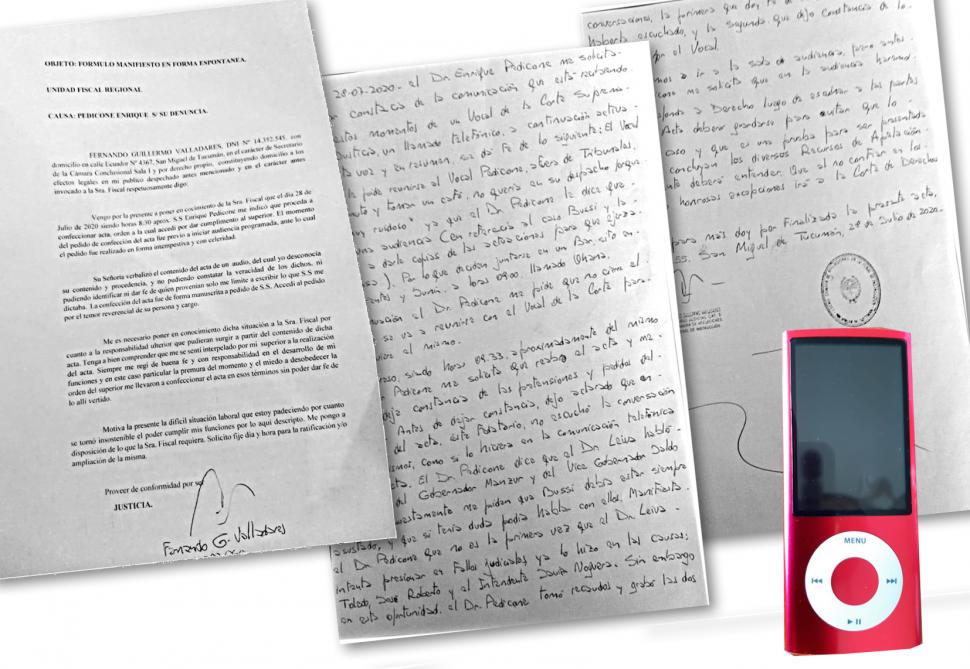 OBJETO: FORMULO MANIFIESTO EN FORMA ESPONTANEA.
UNIDAD FISCAL REGIONAL
CAUSA: PEDICONE ENRIQUE S/ SU DENUNCIA.
FERNANDO GUILLERMO VALLADARES, DNI Nº 14.352.545, con
domicilio en calle Ecuador Nº 4367, San Miguel de Tucumán, en el carácter de Secretario
de la Cámara Conclusional Sala I y por derecho propio, constituyendo domicilio a los
efectos legales en mi público despacho antes mencionado y en el carácter antes
invocado a la Sra. Fiscal respetuosamente digo:
Vengo por la presente a poner en conocimiento de la Sra. Fiscal que el día 28 de
Julio de 2020 siendo horas 8:30 aprox. S.S Enrique Pedicone me indicó que proceda a
confeccionar acta, orden a la cual accedí por dar cumplimiento al superior. El momento
del pedido de confección del acta fue previo a iniciar audiencia programada, ante lo cual
el pedido fue realizado en forma intempestiva y con celeridad.
Su Señoría verbalizó el contenido del acta de un audio, del cual yo desconocía
su contenido y procedencia, y no pudiendo constatar la veracidad de los dichos, ni
pudiendo identificar ni dar fe de quien provenían solo me limite a escribir lo que S.S me
dictaba. La confección del acta fue de forma manuscrita a pedido de S.S. Accedí al pedido
por el temor reverencial de su persona y cargo.
Me es necesario poner en conocimiento dicha situación a la Sra. Fiscal por
cuanto a la responsabilidad ulterior que pudieran surgir a partir del contenido de dicha
acta. Tenga a bien comprender que me se sentí interpelado por mi superior a la realización
del acta. Siempre me regí de buena fe y con responsabilidad en el desarrollo de mi
funciones y en este caso particular la premura del momento y el miedo a desobedecer la
orden del superior me llevaron a confeccionar el acta en esos términos sin poder dar fe de
lo allí vertido.
Motiva la presente la difícil situación laboral que estoy padeciendo por cuanto
se tornó insostenible el poder cumplir mis funciones por lo aquí descripto. Me pongo a
disposición de lo que la Sra. Fiscal requiera. Solicito fije día y hora para la ratificación y/o
ampliación de la misma.
Proveer de conformidad por ser
JUSTICIA.
Fernando G. Valladares
28-07-2020 - el Dr. Enrique Pedicone me solicita
constancia de la comunicación que está recibiendo
estos momentos de un Vocal de la Corte Suprema
Justicia, un llamado telefónico. a continuación activa
la voz y en resumen, doy Fe de lo siguiente: El Vocal
pide reunirse al Vocal Pedicone, afuera de Tribunales,
y tomar un café, no quería en su despacho porque
muy ruidoso - ya que el Dr. Pedicone le dice que
una audiencia Con referencia al caso Bussi, y la
a darle copias de las actuaciones para que
). Por lo que deciden juntarse en un Bar sito en
y Junín a horas 09:00. llamado
el Dr. Pedicone me pide que no cierre el
se va a reunirse con el Vocal de la Corte para
el mismo.
siendo horas 09:33, aproximadamente del mismo
Pedicone me solicita que reabra el acta y me
deja constancia de las pretensiones y pedidos del
Antes de dejar constancia, dejo aclarado que en
del acta, este Fedatario, no escuchó la conversación
como si lo hiciera en la comunicación telefónica
El Dr. Pedicone dice que el Dr. Leiva habló
del Gobernador Manzur y del Vice Gobernador Jaldo
me pidan que Bussi debía estar siempre
asustado, y que si tenía duda podía hablar con ellos. Manifiesta
el Dr. Pedicone que no es la primera vez que el Dr. Leiva
intenta presionar en Fallos judiciales, ya lo hizo en las causas:
Toledo, José Roberto y el Intendente Darío Noguera. Sin embargo
en esta oportunidad, el Dr. Pedicone tomó recaudos y grabó las dos
conversaciones, la primera que doy Fe de
haberla escuchado, y la Segunda que dejo Constancia de lo
el Vocal.
a ir a la sala de audiencia, pero antes
me solicita que en la audiencia haremos
a Derecho luego de escuchar a las partes
Acta deberá guardarse para evitar que lo
caso y que es una prueba para ser presentada
concluyan los diversos Recursos de Apelación.
deberá entender, Que al no confiar en los
honrosas excepciones irá a la Corte de Derechos
para más doy por Finalizada la presente acta,
San Miguel de Tucumán, 28 de Julio 2020.
MENU